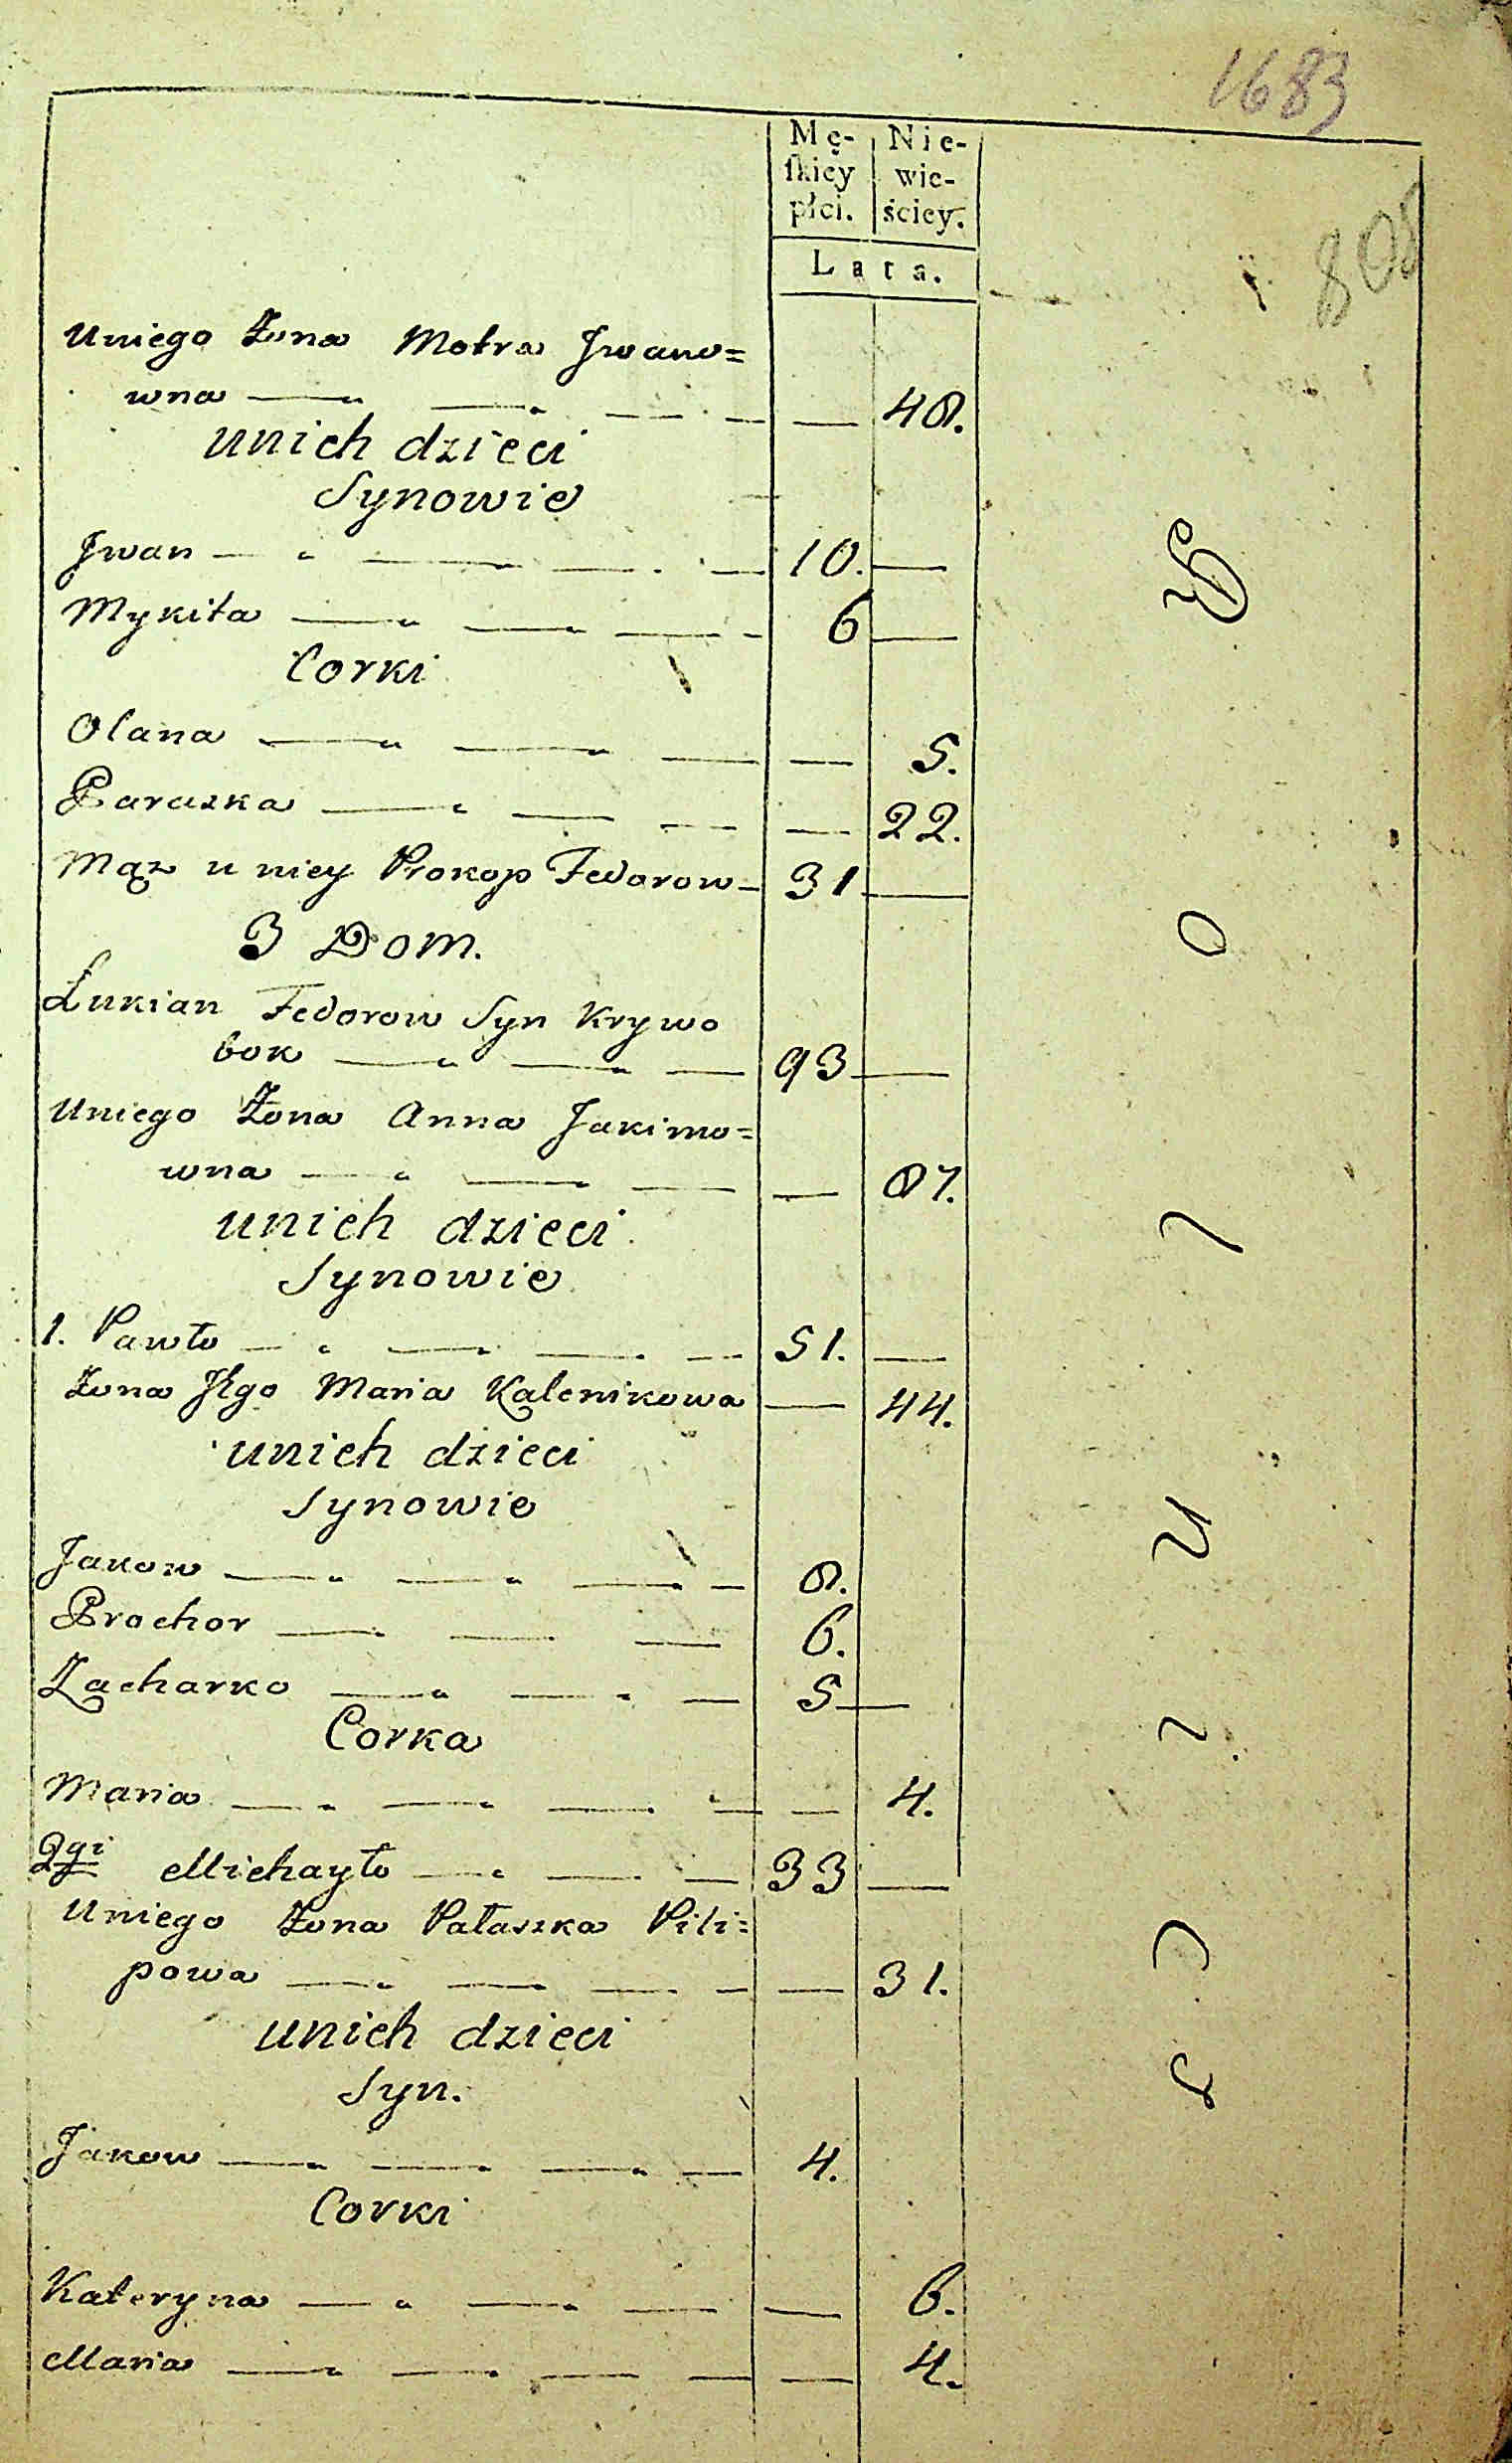 1683
Mę- Nie-
ſkiey wie-
płci. ściey.
Lata.
808
Uniego Żona Motra Jwano=
wna — 48.
unich dzieci
Synowie
Jwan — 10. —
Mykita — 6 —
Corki
Olana — 5.
Paraszka — 22.
Mąz u niey Prokop Fedorow — 31 —
3 Dom.
Łukian Fedorow Syn Krywo
bok — 93 —
Uniego Żona Anna Jakimo=
wna — 87.
unich dzieci
Synowie
1. Pawło — 51. —
Żona Jego Maria Kalenikowa — 44.
unich dzieci
Synowie
Jakow — 8.
Prochor — 6.
Zacharko — 5 —
Corka
Maria — 4.
2gi Michayło — 33 —
Uniego Żona Pałaszka Pili=
powa — 31.
unich dzieci
Syn.
Jakow — 4.
Corki
Kateryna — 6.
Maria — 4.